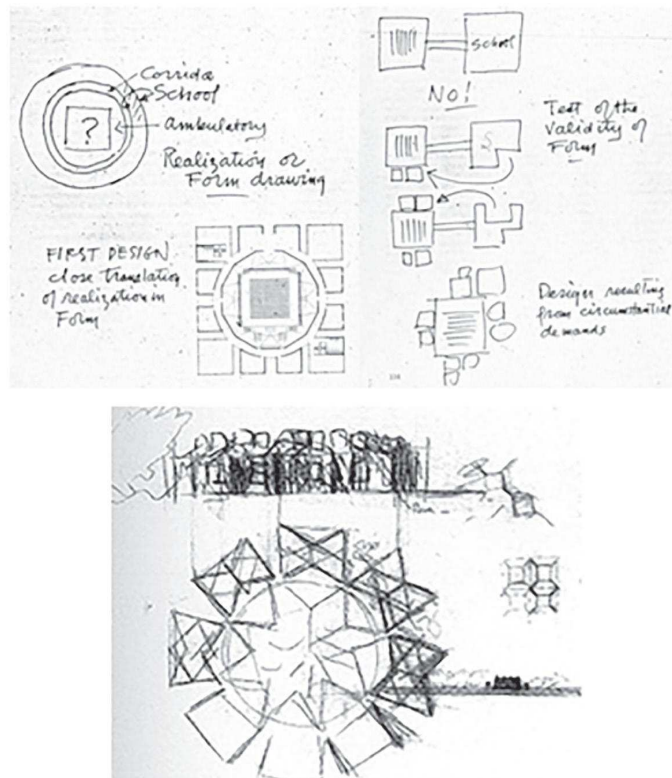 Corridor
School
ambulatory
?
Realization or
Form drawing
FIRST DESIGN
close translation
of realization in
Form
School
NO!
S
Test of the
Validity of
Form
Design resulting
from circumstantial
demands